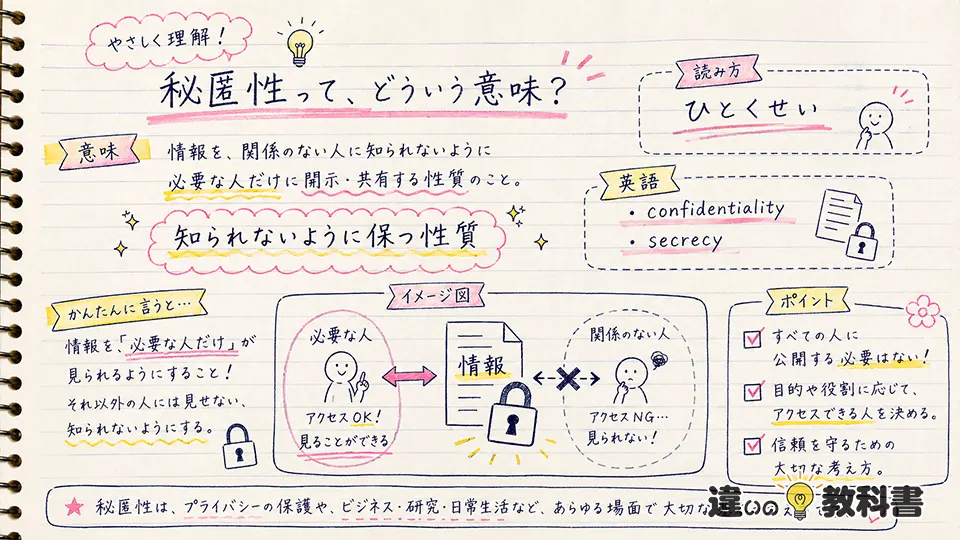 やさしく理解！
秘匿性って、どういう意味？
読み方
ひとくせい
意味
情報を、関係のない人に知られないように
必要な人だけに開示・共有する性質のこと。
知られないように保つ性質
英語
・confidentiality
・secrecy
かんたんに言うと…
情報を、「必要な人だけ」が
見られるようにすること！
それ以外の人には見せない、
知られないようにする。
イメージ図
必要な人
アクセスOK！
見ることができる
情報
関係のない人
アクセスNG…
見られない！
ポイント
すべての人に
公開する必要はない！
目的や役割に応じて、
アクセスできる人を決める。
信頼を守るための
大切な考え方。
秘匿性は、プライバシーの保護や、ビジネス・研究・日常生活など、あらゆる場面で大切な
違いの教科書